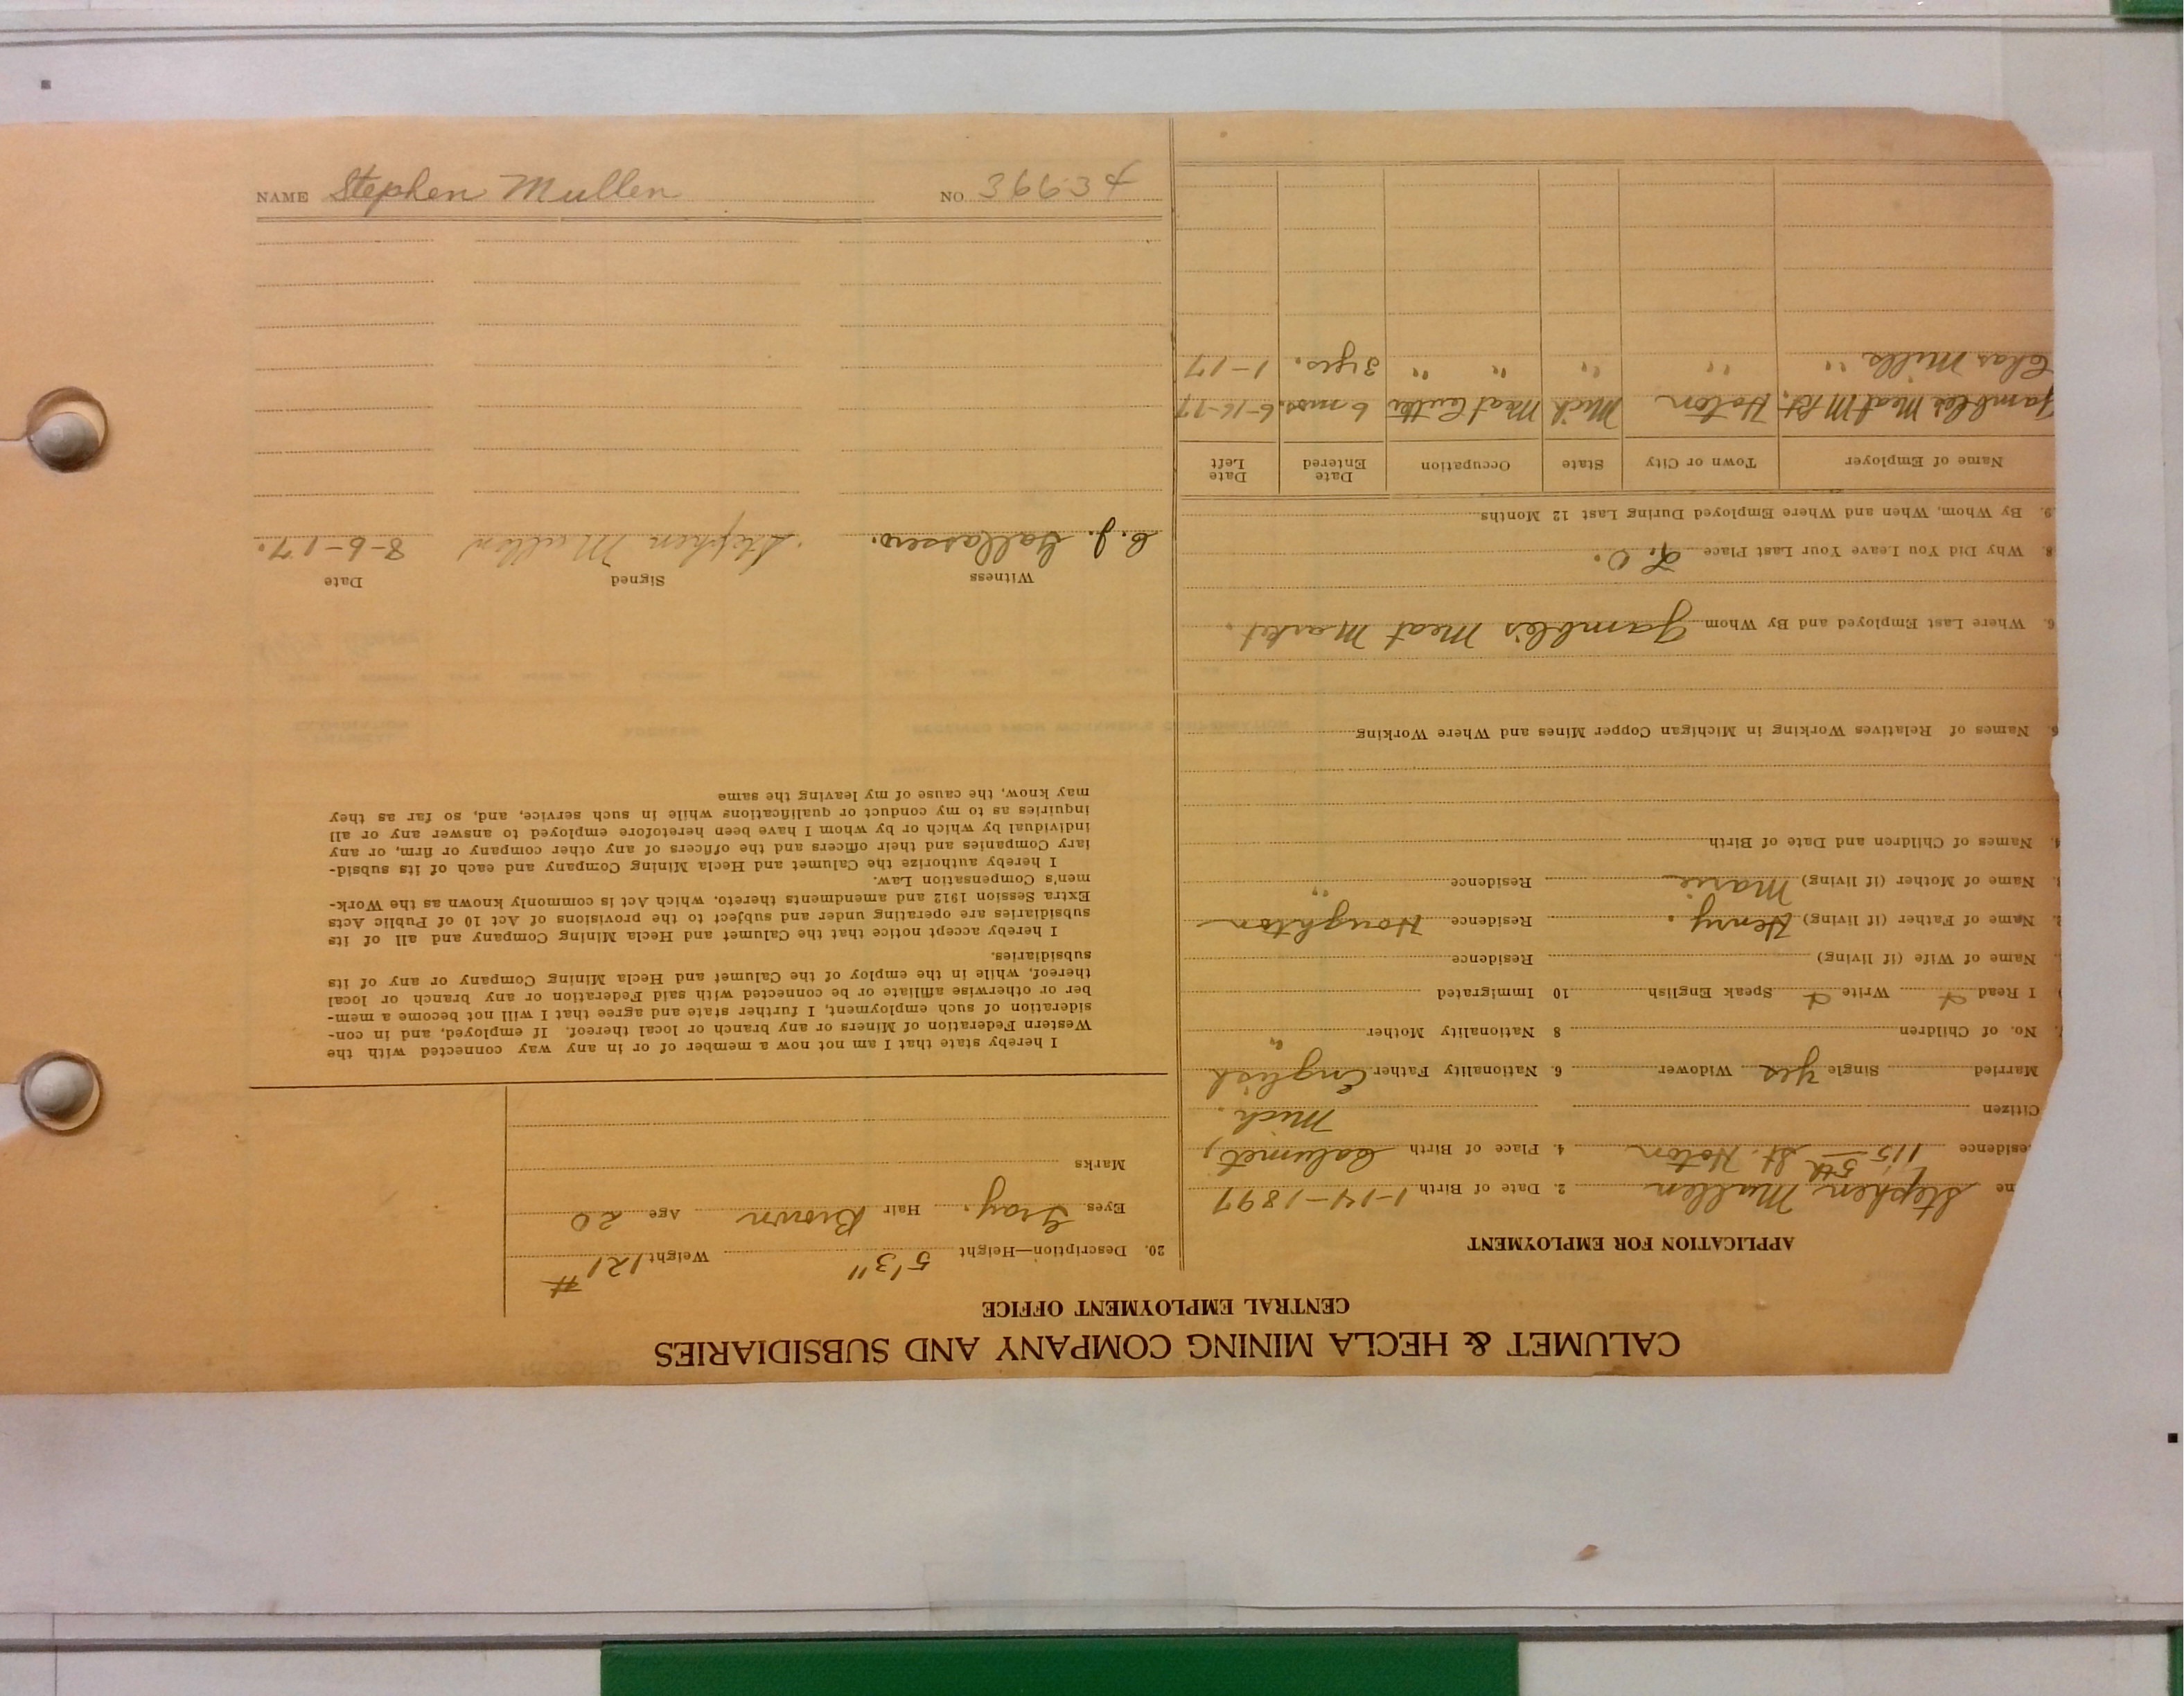 CALUMET & HECLA MINING COMPANY AND SUBSIDIARIES
CENTRAL EMPLOYMENT OFFICE
APPLICATION FOR EMPLOYMENT
me Stephen Mullen 2. Date of Birth 1-14-1897
esidence 115 5th St. Hoton 4. Place of Birth Calumet,
Mich.
Citizen
Married Single Yes Widower 6. Nationality Father English
No. of Children 8 Nationality Mother "
I Read Write Speak English 10 Immigrated
Name of Wife (if living) Residence
Name of Father (if living) Henry. Residence Houghton
Name of Mother (if living) Marie Residence "
Names of Children and Date of Birth
Names of Relatives Working in Michigan Copper Mines and Where Working
6. Where Last Employed and By Whom Gamble's Meat Market.
8. Why Did You Leave Your Last Place
9. By Whom, When and Where Employed During Last 12 Months
Name of Employer Town or City State Occupation Date Entered Date Left
Gambles Meat Mkt. Hoton Mich Meat Cutter 6 mos. 6-16-17
Chas Mills " " " " " 3 yrs. 1-17
20. Description—Height 5'3" Weight 121 #
Eyes Gray. Hair Brown Age 20
Marks
I hereby state that I am not now a member of or in any way connected with the
Western Federation of Miners or any branch or local thereof. If employed, and in con-
sideration of such employment, I further state and agree that I will not become a mem-
ber or otherwise affiliate or be connected with said Federation or any branch or local
thereof, while in the employ of the Calumet and Hecla Mining Company or any of its
subsidiaries.
I hereby accept notice that the Calumet and Hecla Mining Company and all of its
subsidiaries are operating under and subject to the provisions of Act 10 of Public Acts
Extra Session 1912 and amendments thereto, which Act is commonly known as the Work-
men's Compensation Law.
I hereby authorize the Calumet and Hecla Mining Company and each of its subsid-
iary Companies and their officers and the officers of any other company or firm, or any
individual by which or by whom I have been heretofore employed to answer any or all
inquiries as to my conduct or qualifications while in such service, and, so far as they
may know, the cause of my leaving the same
Witness Signed Date
C. J. Stephen Mullen 8-6-17.
NAME Stephen Mullen NO. 36634